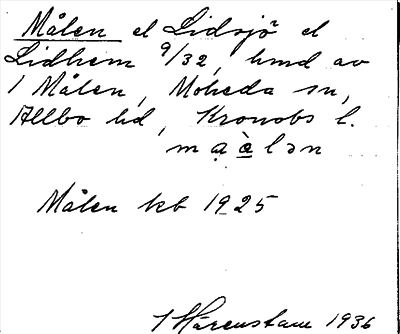 Målen el Lidsjö el
Lidhem 9/32, hmd av
1 Målen, Moheda sn,
Allbo hd, Kronobs l.
mạɛ̀lən
Målen kb 1925
I Härenstam 1936